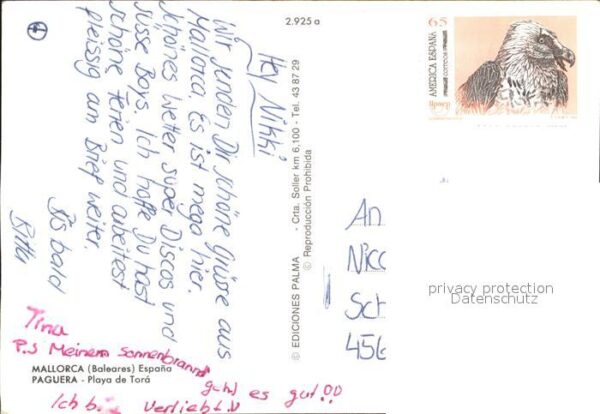 2.925 a
Hey Nikki
Wir senden Dir schöne Grüsse aus
Mallorca. Es ist mega hier.
Schönes Wetter super Discos und
süsse Boys. Ich hoffe Du hast
schöne Ferien und arbeitest
fleissig an Brief weiter.
Bis bald
Tina
P.S Meinem Sonnenbrannd
geht es gut!!
Ich bin verliebt!!
MALLORCA (Baleares) España
PAGUERA - Playa de Torá
© EDICIONES PALMA - Crta. Soller km 6,100 - Tel. 43 87 29
© Reproducción Prohibida
65
AMERICA ESPAÑA
CORREOS
An
Nicc
Sch
456
privacy protection
Datenschutz